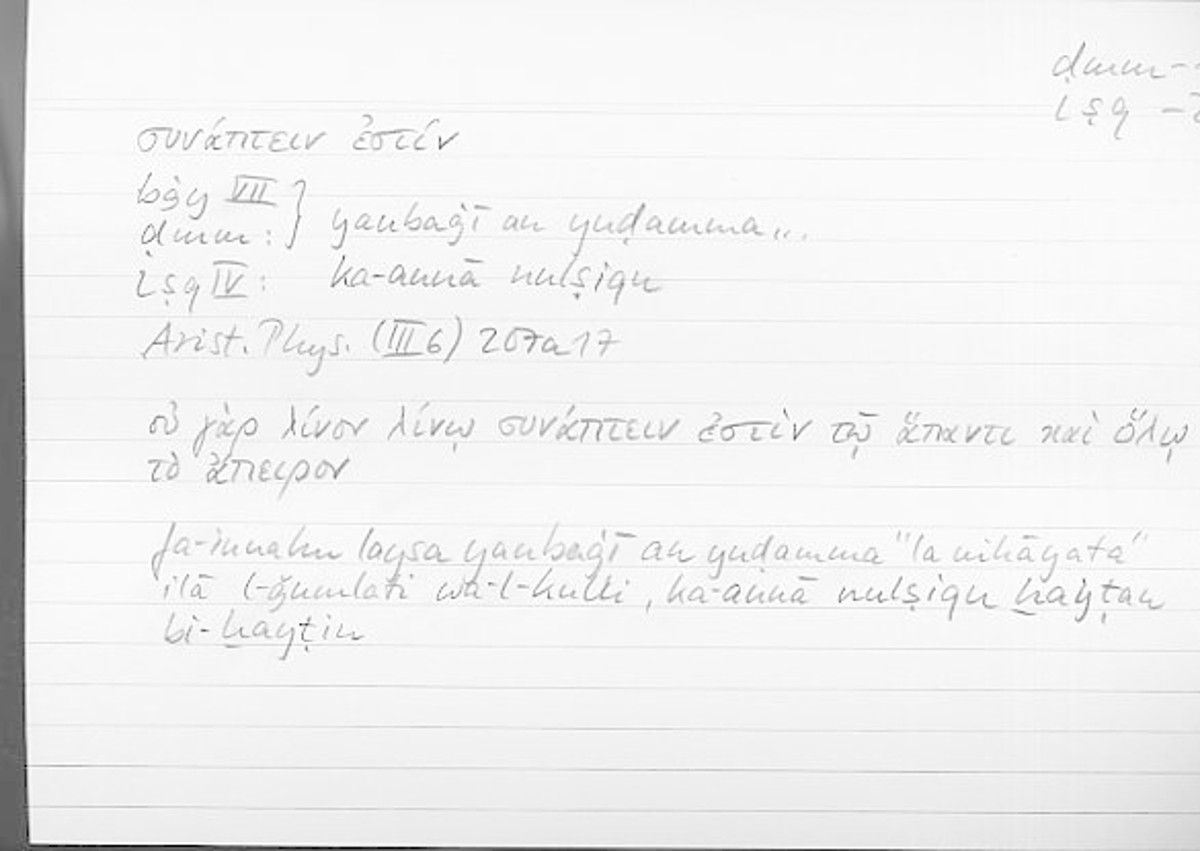 ḍmm -
lṣq -
συνάπτειν ἐστίν
bġy VII
ḍmm : } yanbaġī an yuḍamma...
lṣq IV : ka-annā nulṣiqu
Arist. Phys. (III 6) 207a17
οὐ γὰρ λίνον λίνῳ συνάπτειν ἐστὶν τῷ ἅπαντι καὶ ὅλῳ
τὸ ἄπειρον
fa-innahu laysa yanbaġī an yuḍamma "la nihāyata"
ilā l-ǧumlati wa-l-kulli, ka-annā nulṣiqu ḫayṭan
bi-ḫayṭin